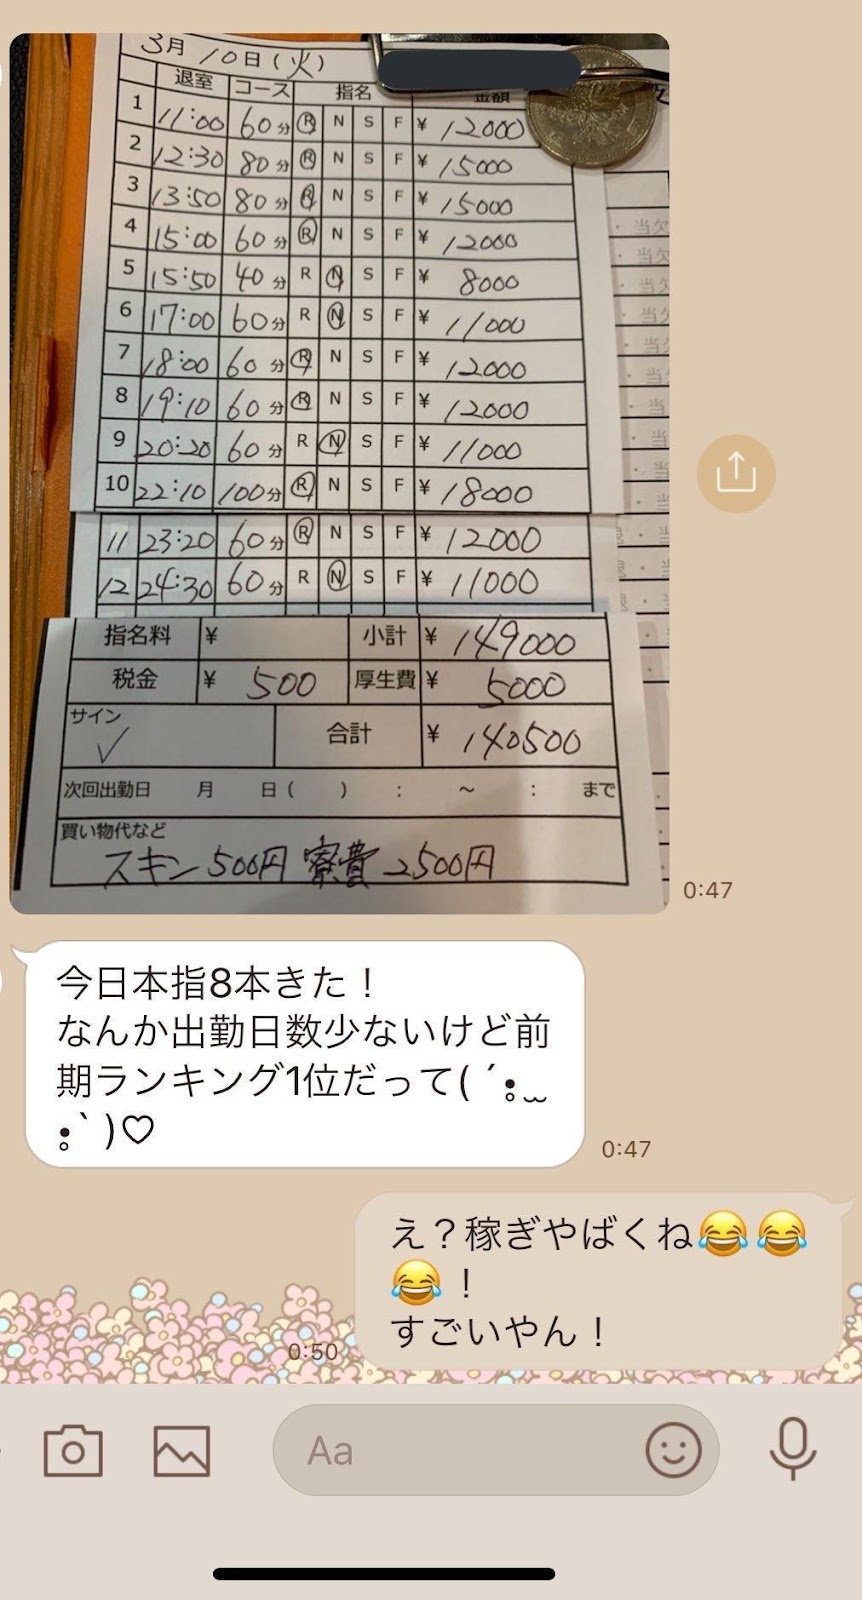 3月10日(火)
退室 コース 指名 金額
1 11:00 60分 R N S F ¥ 12000
2 12:30 80分 R N S F ¥ 15000
3 13:50 80分 R N S F ¥ 15000
4 15:00 60分 R N S F ¥ 12000
5 15:50 40分 R N S F ¥ 8000
6 17:00 60分 R N S F ¥ 11000
7 18:00 60分 R N S F ¥ 12000
8 19:10 60分 R N S F ¥ 12000
9 20:20 60分 R N S F ¥ 11000
10 22:10 100分 R N S F ¥ 18000
11 23:20 60分 R N S F ¥ 12000
12 24:30 60分 R N S F ¥ 11000
指名料 ¥ 小計 ¥ 149000
税金 ¥ 500 厚生費 ¥ 5000
サイン
合計 ¥ 140500
次回出勤日 月 日( ) : ~ : まで
買い物代など
スキン500円 寮費2500円
0:47
今日本指8本きた！
なんか出勤日数少ないけど前
期ランキング1位だって( ´•̥ ‿
•̥` )♡
0:47
え？稼ぎやばくね😂😂
😂！
すごいやん！
0:50
Aa